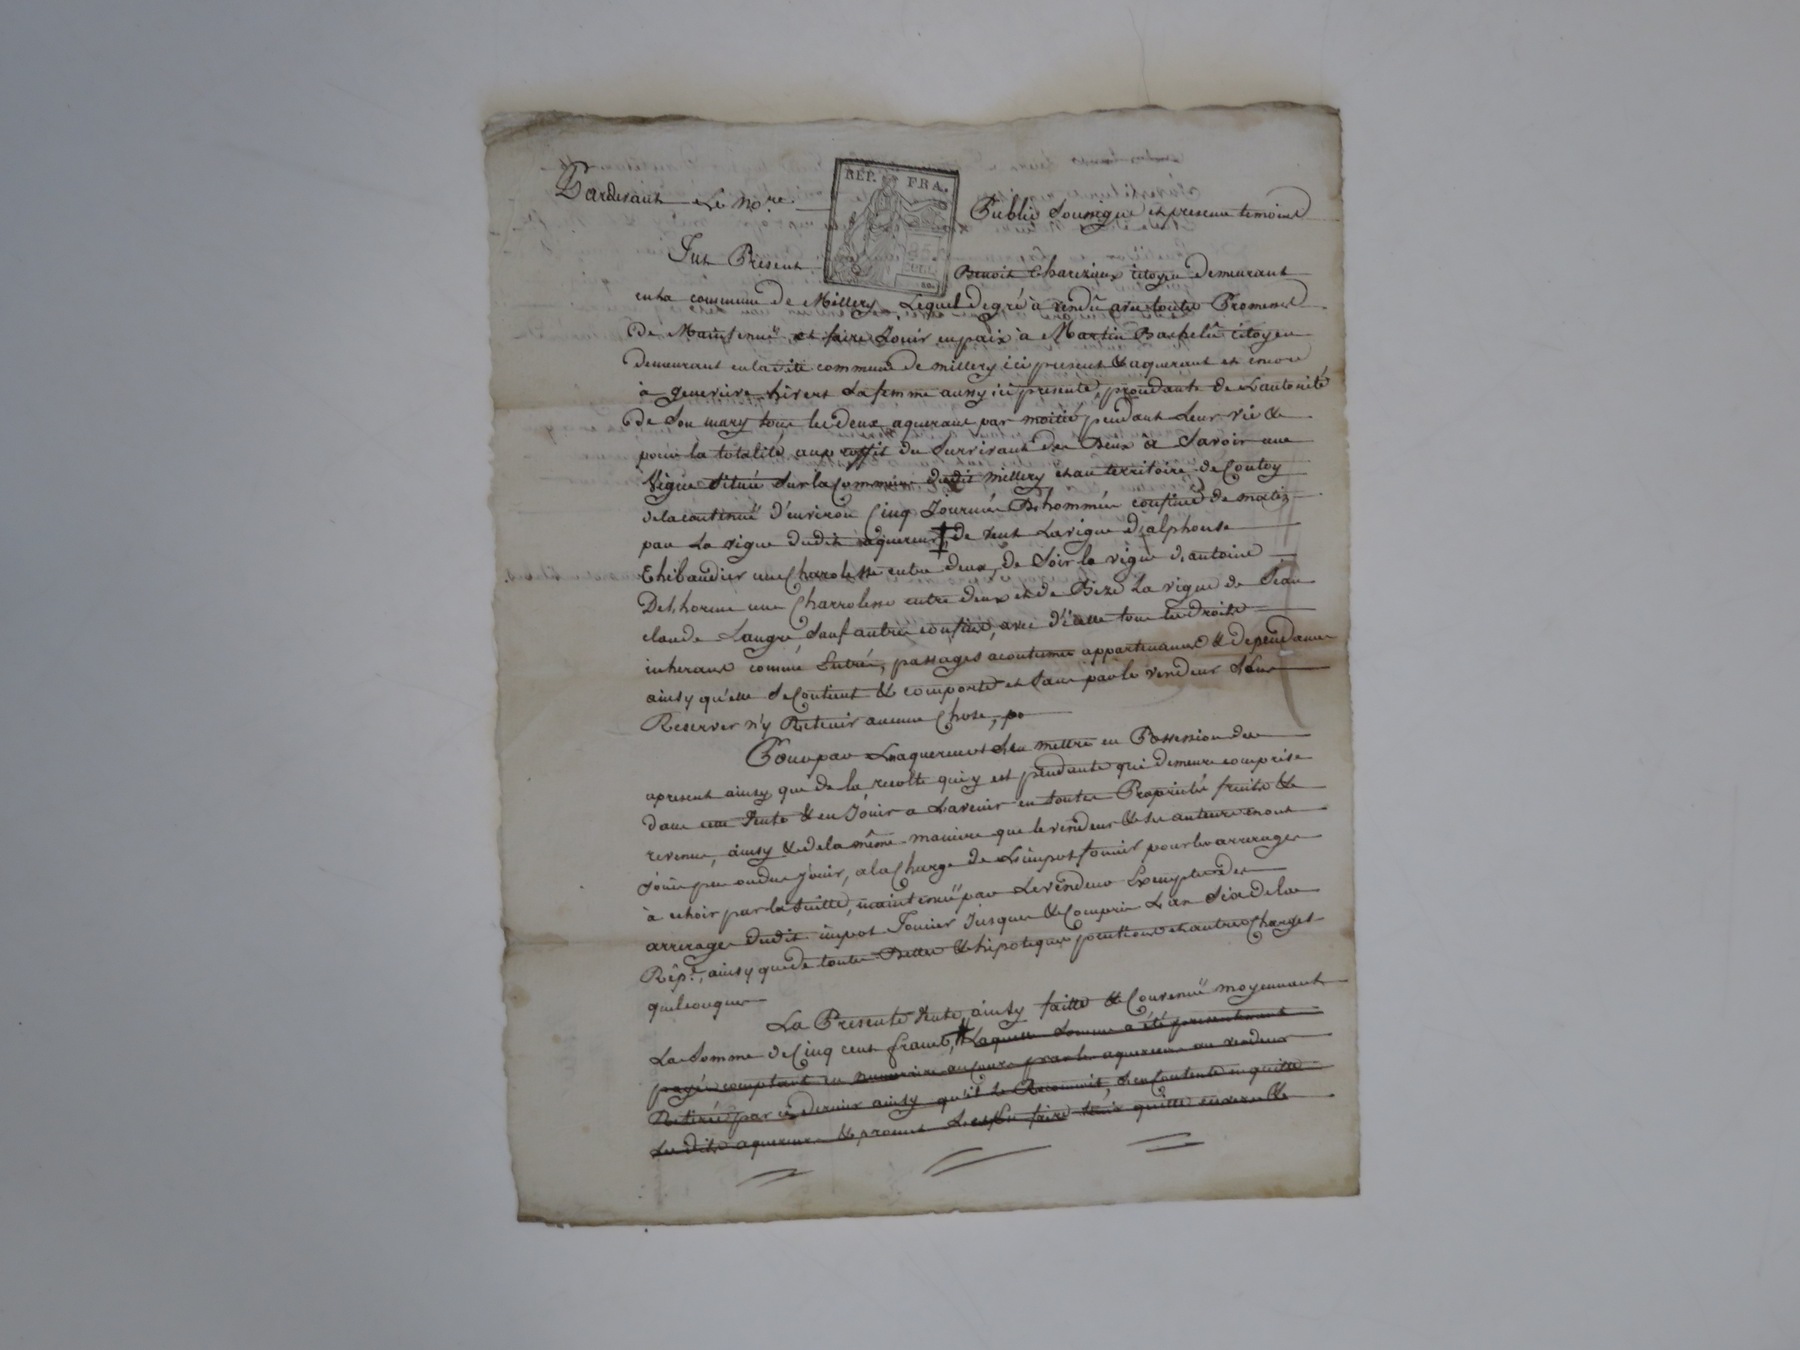 Pardevant Le No.re Public Soussigné et presens temoins
REP. FRA.
Fut Présent Benoit Charezieux citoyen demeurant
en la commune de Millery, Lequel de gré à vendu avec toutes Promesses
de Maintenuë et faire Jouir en paix à Martin Bachelu citoyen
demeurant en la dite commune de millery ici present & aquerant et encore
à genevieve hivert sa femme aussy ici presente, procedante de L'autorité
de Son mary tous les deux aquerant par moitié pendant Leur vie &
pour la totalité au proffit du Survivant des Deux à Savoir une
Vigne Située Sur la Commune dudit millery et au territoire de Coutoy
de la contenuë d'environ Cinq Journée D'hommée confinée de matin
par La vigne dudit aquereur, de vent La vigne d'alphonse
Thibaudier une Charolesse entre deux, de Soir la vigne d'antoine
Delhorme une Charrolesse entre deux et de Bize La vigne de Jean
claude Laugre Sauf autres confins, avec d'icelle tous les droits
inherans comme Entrée, passages acoutumés appartenances & dependances
ainsy qu'elle Se Contient & comporte et Sans par le vendeur S'en
Reserver n'y Retenir aucune Chose, po
Pour par Les aquereurs S'en mettre en Possession des
apresent ainsy que de la recolte qui y est pendante qui demeure comprise
dans cette Vente & en Jouir a L'avenir en toutes Proprieté fruits &
revenus, ainsy & de la même maniere que le vendeur & Ses auteurs en ont
Jouis peu ou due Jouir, a la Charge de L'impot foncier pour les arrerages
à echoir par la Suitte, maintenuë par Le vendeur Exempte des
arrerages dudit impot Foncier Jusques & Compris L'an Six de la
Rép.e, ainsy que de toutes Dettes & hipoteques pensions et autres Charges
quelconques
La Presente Vente ainsy faitte & Convenuë moyennant
La Somme de Cinq cent francs, Laquelle Somme a été presentement
payée comptant en numeraire au cours par les aquereurs au vendeur
Retirée par ce dernier ainsy qu'il le Reconnoit, S'en Contente en quitte
Les dits aquereurs & promet Les en faire tenir quitte envers &